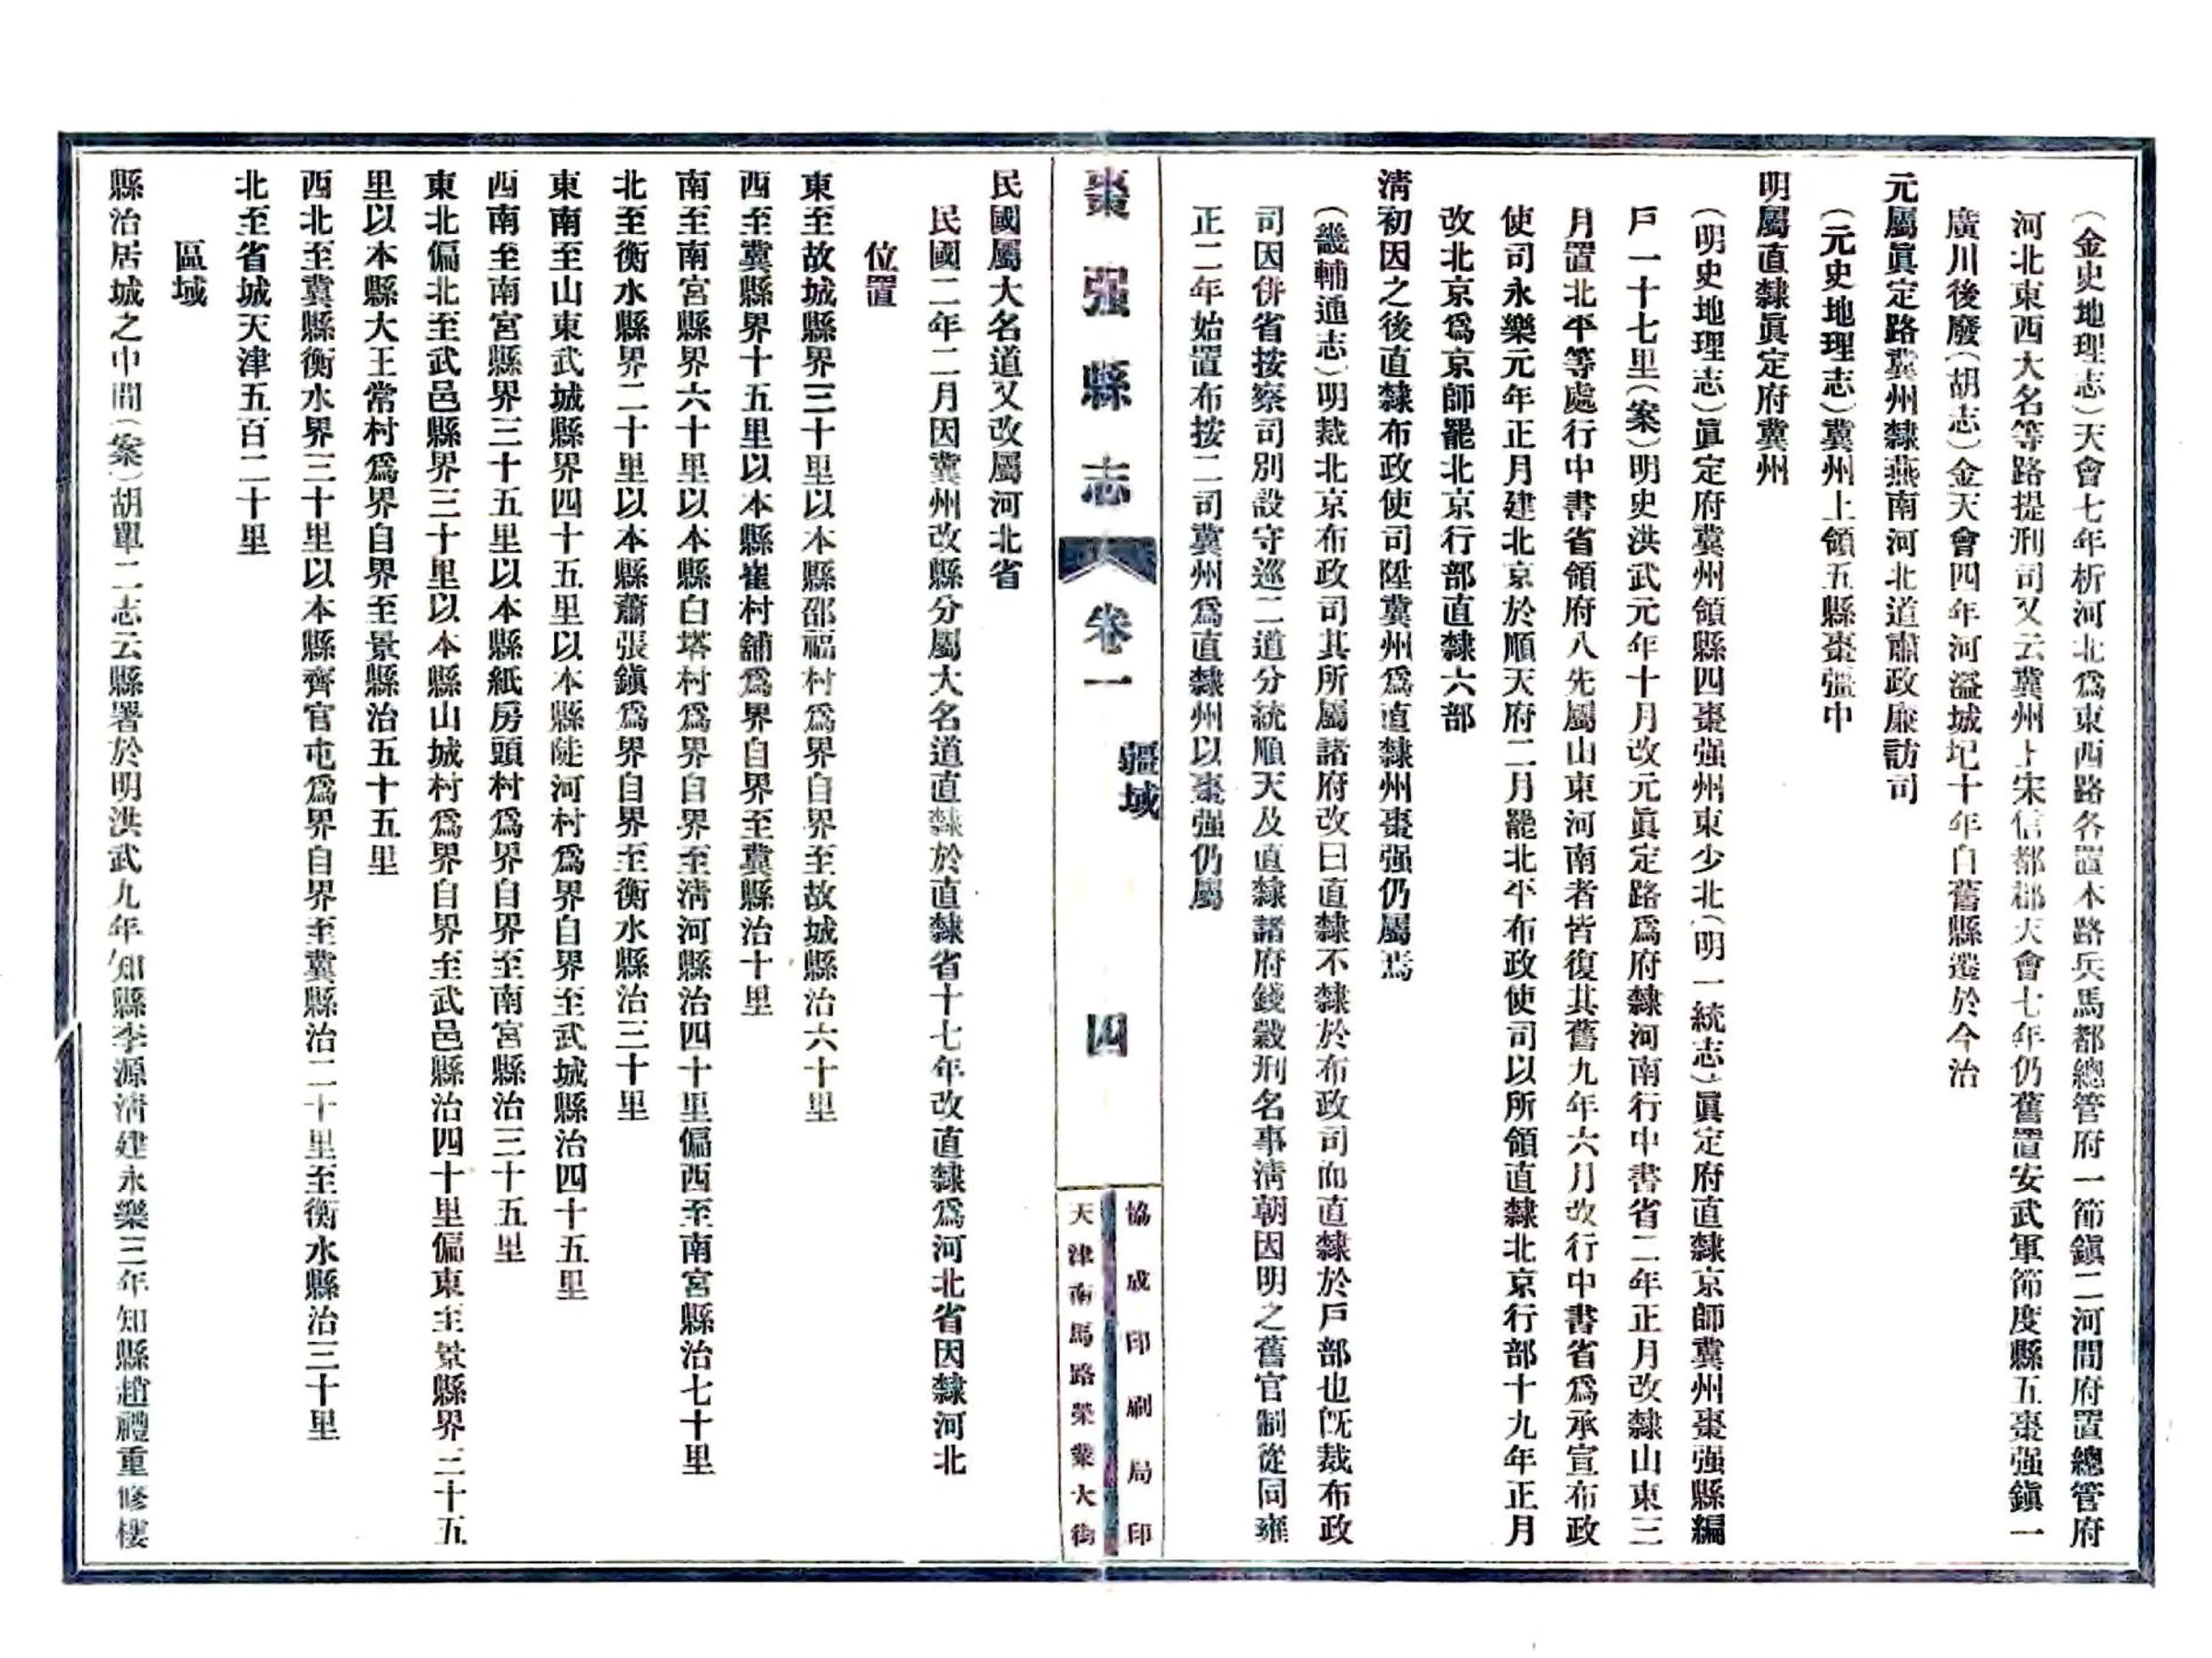 （金史地理志）天會七年析河北爲東西路各置本路兵馬都總管府一節鎭二河間府置總管府
河北東西大名等路提刑司又云冀州上宋信都郡天會七年仍舊置安武軍節度縣五棗强鎭一
廣川後廢（胡志）金天會四年河溢城圮十年自舊縣遷於今治
元屬眞定路冀州隸燕南河北道肅政廉訪司
（元史地理志）冀州上領五縣棗强中
明屬直隸眞定府冀州
（明史地理志）眞定府冀州領縣四棗强州東少北（明一統志）眞定府直隸京師冀州棗强縣編
戶一十七里（案）明史洪武元年十月改元眞定路爲府隸河南行中書省二年正月改隸山東三
月置北平等處行中書省領府八先屬山東河南者皆復其舊九年六月改行中書省爲承宣布政
使司永樂元年正月建北京於順天府二月罷北平布政使司以所領直隸北京行部十九年正月
改北京爲京師罷北京行部直隸六部
淸初因之後直隸布政使司陞冀州爲直隸州棗强仍屬焉
（畿輔通志）明裁北京布政司其所屬諸府改曰直隸不隸於布政司而直隸於戶部也旣裁布政
司因倂省按察司別設守巡二道分統順天及直隸諸府錢穀刑名事淸朝因明之舊官制從同雍
正二年始置布按二司冀州爲直隸州以棗强仍屬
棗强縣志 卷一 疆域 四
協成印刷局印
天津南馬路榮業大街
民國屬大名道又改屬河北省
民國二年二月因冀州改縣分屬大名道直隸於直隸省十七年改直隸爲河北省因隸河北
位置
東至故城縣界三十里以本縣邵福村爲界自界至故城縣治六十里
西至冀縣界十五里以本縣崔村舖爲界自界至冀縣治十里
南至南宮縣界六十里以本縣白塔村爲界自界至淸河縣治四十里偏西至南宮縣治七十里
北至衡水縣界二十里以本縣蕭張鎭爲界自界至衡水縣治三十里
東南至山東武城縣界四十五里以本縣陡河村爲界自界至武城縣治四十五里
西南至南宮縣界三十五里以本縣紙房頭村爲界自界至南宮縣治三十五里
東北偏北至武邑縣界三十里以本縣山城村爲界自界至武邑縣治四十里偏東至景縣界三十五
里以本縣大王常村爲界自界至景縣治五十五里
西北至冀縣衡水界三十里以本縣齊官屯爲界自界至冀縣治二十里至衡水縣治三十里
北至省城天津五百二十里
區域
縣治居城之中間（案）胡單二志云縣署於明洪武九年知縣李源淸建永樂三年知縣趙禮重修樓